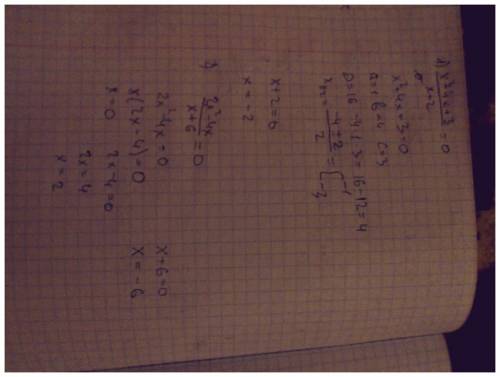 x²+4x+3 / x+2 = 0
x²+4x+3=0
a=1 b=4 c=3
D=16-4·1·3=16-12=4
= -4±2 / 2 = [ -1 -3
x+2=0
x=-2
2) 2x²-4x / x+6 = 0
2x²-4x=0 x+6=0
x(2x-4)=0 x=-6
x=0 2x-4=0
2x=4
x=2